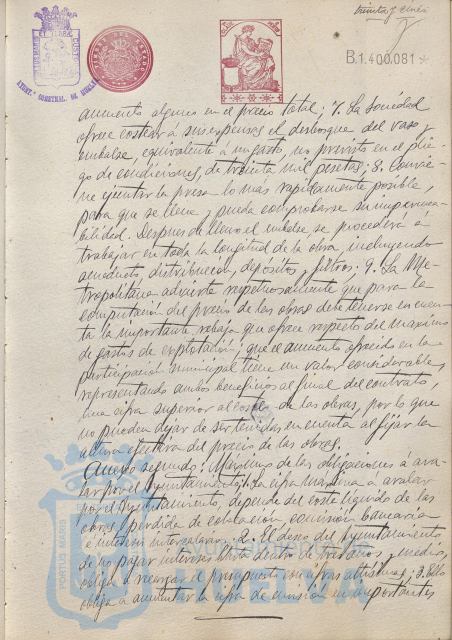 treinta y cinco
B.1.400.081*
aumento alguno en el precio total; 7. La Sociedad
ofrece costear á sus expensas el desbosque del vaso y
embalse, equivalente á un gasto, no previsto en el plie-
go de condiciones, de treinta mil pesetas; 8. Convie-
ne ejecutar la presa lo mas rapidamente posible,
para que se llene y pueda comprobarse su impermea-
bilidad. Despues de lleno el embalse se procederá á
trabajar en toda la longitud de la obra, incluyendo
acueducto, distribucion, depósitos y filtros; 9. La Me-
tropolitana advierte respetuosamente que para la
computacion del precio de las obras debe tenerse en cuen-
ta la importante rebaja que ofrece respecto del maximo
de gastos de explotación; que el aumento ofrecido en la
participacion municipal tiene un valor considerable,
representando ambos beneficios al final del contrato,
una cifra superior al coste de las obras, por lo que
no pueden dejar de ser tenidos en cuenta al fijar la
altura efectiva del precio de las obras.
Anexo segundo: Maximo de las obligaciones á ava-
lar por el Ayuntamiento; 1. La cifra maxima á avalar
por el Ayuntamiento, depende del coste liquido de las
obras, perdida de colocación, comisión bancaria
é intereses intercalares; 2. El deseo del Ayuntamiento
de no pagar intereses hasta dentro de tres años y medio,
obliga á recargar el presupuesto con cifras altisimas; 3. Ello
obliga á aumentar la cifra de emisión en importantes